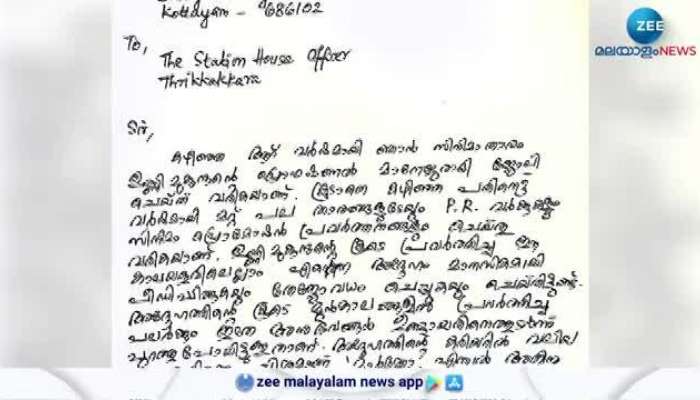 Kottayam - 686102
ZEE
മലയാളം NEWS
To,
The Station House Officer
Thrikkakkara
Sir,
കഴിഞ്ഞ ആറ് വർഷമായി ഞാൻ സിനിമാ താരം
ഉണ്ണി മുകുന്ദന്റെ പ്രൊഫഷണൽ മാനേജരായി ജോലി
ചെയ്ത് വരികയാണ്. കൂടാതെ കഴിഞ്ഞ പതിനെട്ട്
വർഷമായി മറ്റ് പല താരങ്ങളുടേയും P.R. വർക്കുകളും
സിനിമാ പ്രൊമോഷൻ പ്രവർത്തനങ്ങളും ചെയ്തു
വരികയാണ്. ഉണ്ണി മുകുന്ദന്റെ കൂടെ പ്രവർത്തിച്ച ഈ
കാലയളവിലെല്ലാം എന്നെ അദ്ദേഹം മാനസികമായി
പീഡിപ്പിക്കുകയും തേജോവധം ചെയ്യുകയും ചെയ്തിട്ടുണ്ട്.
അദ്ദേഹത്തിന്റെ കൂടെ മുൻകാലങ്ങളിൽ പ്രവർത്തിച്ച
പലർക്കും ഇതേ അനുഭവങ്ങൾ ഉണ്ടായതിനെത്തുടർന്ന്
പുറത്തു പോയിട്ടുള്ളതാണ്. അദ്ദേഹത്തിന്റെ കരിയറിൽ വലിയ
zee malayalam news app